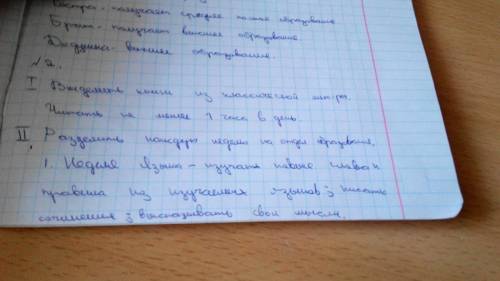 Сестра - получает среднее полное образование
Брат - получает высшее образование.
Дедушка - высшее образование.
√2.
I Выделить книги из классической лит-ры.
Читать не менее 1 часа в день.
II. Разделить каждую неделю на отдел образования.
1. Неделя языка - изучать новые слова и
правила из изучаемых языков; писать
сочинения; высказывать свои мысли.